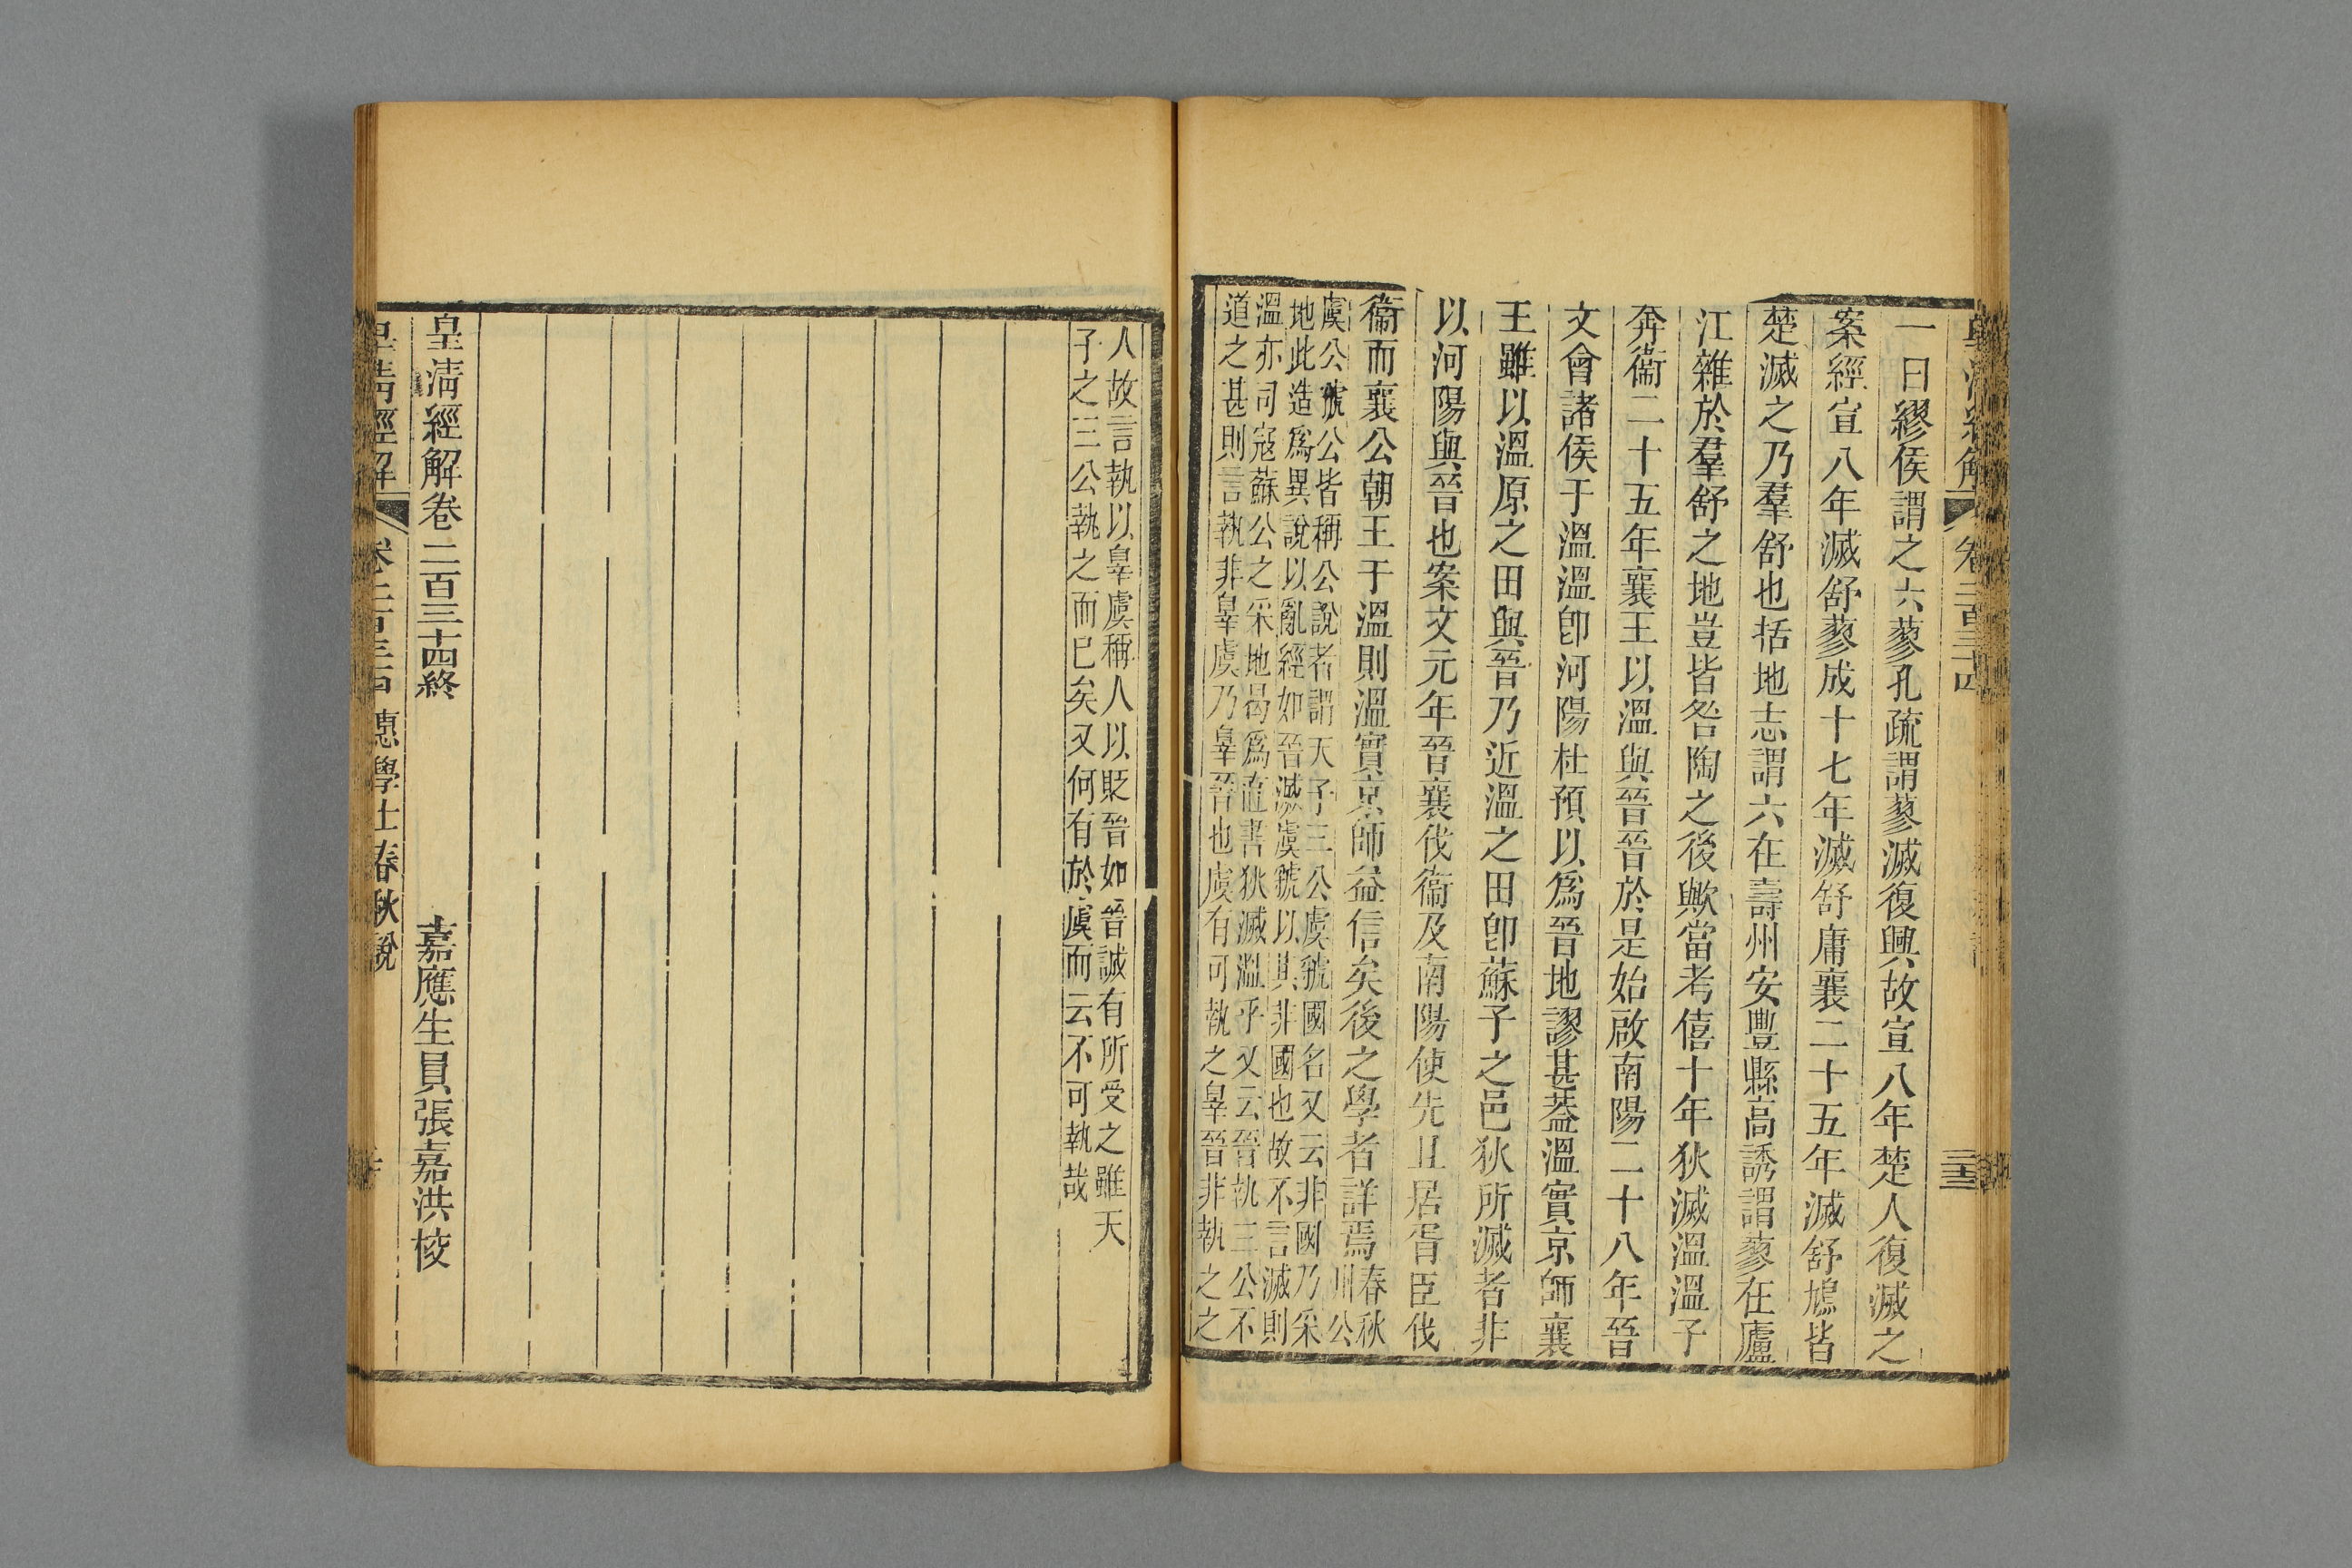 皇清經解 卷二百三十四
一曰繆侯謂之六蓼孔疏謂蓼滅復興故宣八年楚人復滅之
案經宣八年滅舒蓼成十七年滅舒庸襄二十五年滅舒鳩皆
楚滅之乃羣舒也括地志謂六在壽州安豐縣高誘謂蓼在廬
江雜於羣舒之地豈皆咎陶之後歟當考僖十年狄滅溫溫子
奔衞二十五年襄王以溫與晉晉於是始啟南陽二十八年晉
文會諸侯于溫溫卽河陽杜預以爲晉地謬甚葢溫實京師襄
王雖以溫原之田與晉乃近溫之田卽蘇子之邑狄所滅者非
以河陽與晉也案文元年晉襄伐衞及南陽使先且居胥臣伐
衞而襄公朝王于溫則溫實京師益信矣後之學者詳焉
春秋
州公
虞公虢公皆稱公說者謂天子三公虞虢國名又云非國乃采
地此造爲異說以亂經如晉滅虞虢以其非國也故不言滅則
溫亦司寇蘇公之采地曷爲直書狄滅溫乎又云晉執三公不
道之甚則言執非辠虞乃辠晉也虞有可執之辠晉非執之之
人故言執以辠虞稱人以貶晉如晉誠有所受之雖天
子之三公執之而已矣又何有於虞而云不可執哉
皇清經解卷二百三十四終
嘉應生員張嘉洪校
皇清經解 卷二百三十四 惠學士春秋說